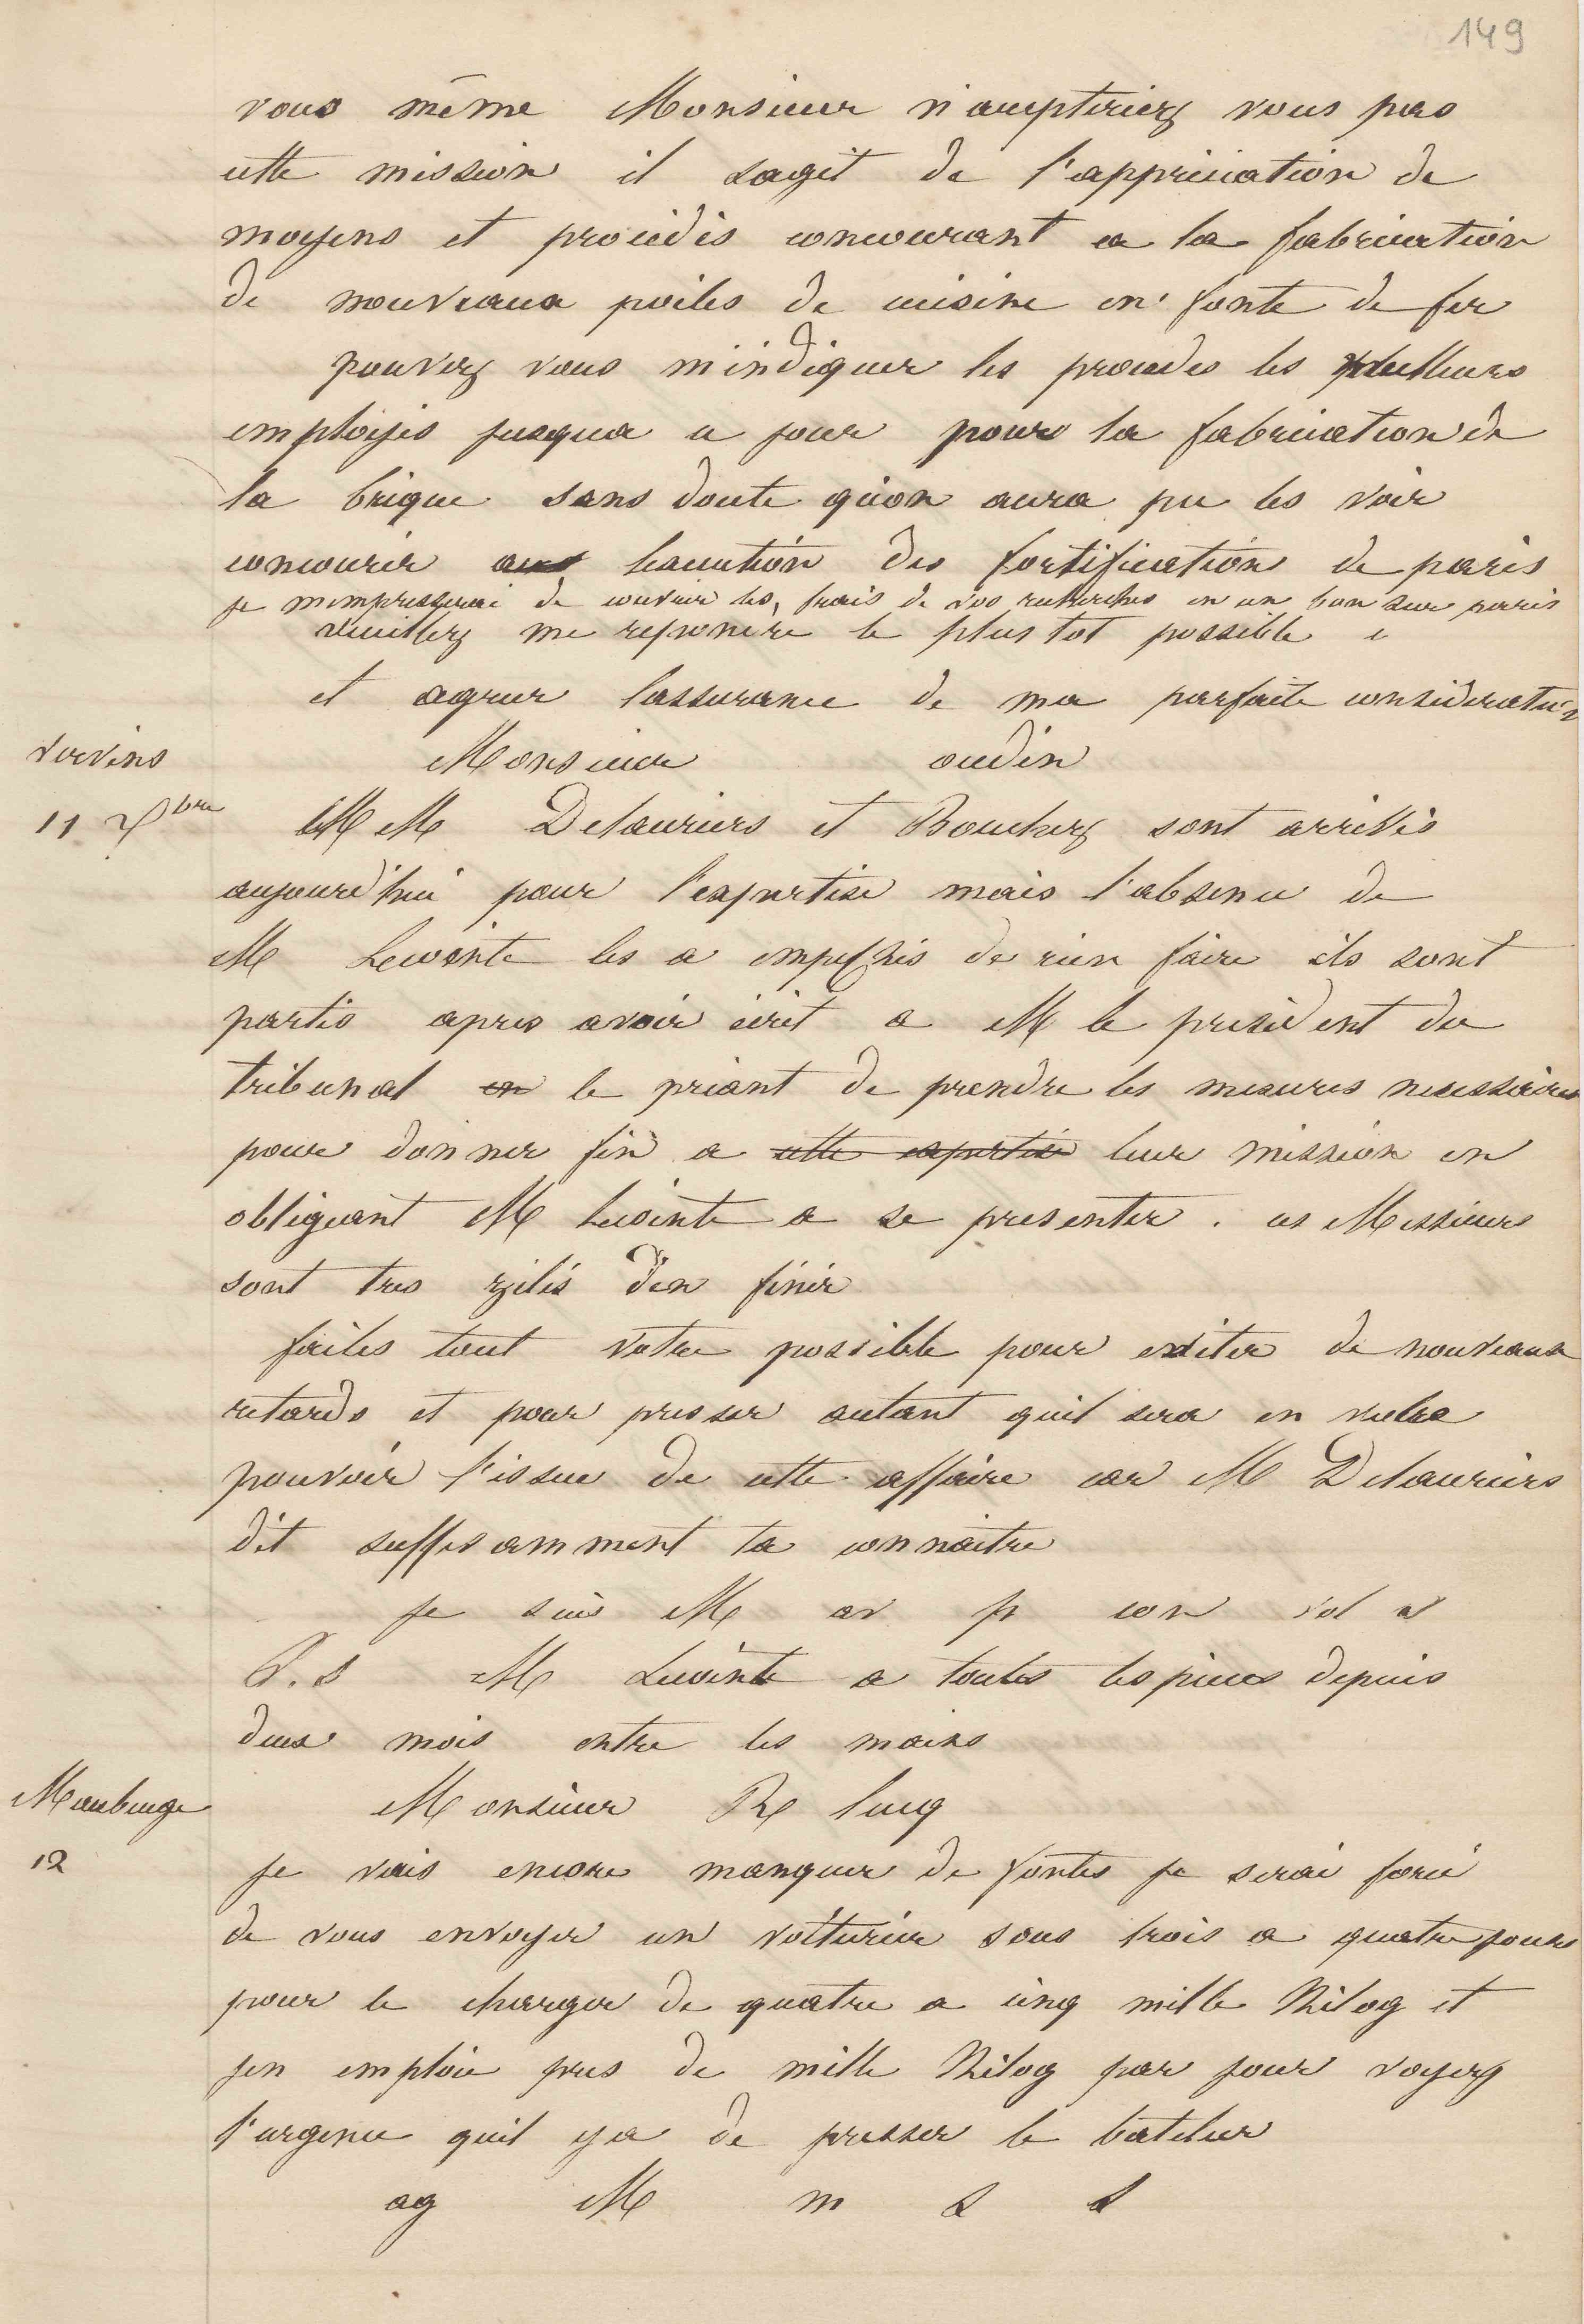 149
vous même Monsieur n'accepteriez vous pas
cette mission il sagit de l'appréciation de
moyens et procédés concourant a la fabrication
de nouveaux poiles de cuisine en fonte de fer
pouvez vous m'indiquer les procedes les meilleurs
emploÿés jusqua ce jour pour la fabrication de
la brique sans doute qu'on aura pu les voir
concourir lexecution des fortification de paris
je mempresserai de couvrir les frais de vos recherches en un bon sur paris
veuillez me repondre le plus tot possible
et agreer lassurance de ma parfaite consideration
vervins Monsieur oudin
11 Xbre MM Delauriers et Bouchez sont arrivés
aujourd'hui pour l'expertise mais l'absence de
M Lecointe les a empechés de rien faire ils sont
partis apres avoir écrit a M le president du
tribunal en le priant de prendre les mesures necessaires
pour donner fin a cette expertise leur mission en
obligeant M Lecointe a se presenter . ces Messieurs
sont tres zélés d'en finir
faites tout votre possible pour eviter de nouveaux
retards et pour presser autant quil sera en votre
pouvoir l'issue de cette affaire car M Delauriers
dit suffisamment la connaitre
je suis M av p con
P.S M Lecointe a toutes les pieces depuis
deux mois entre les mains
Maubeuge Monsieur Rl lucq
12 je vais encore manquer de fontes je serai forcé
de vous envoyer un voiturier sous trois a quatre jours
pour le charger de quatre a cinq mille Kilog et
jen emploie pres de mille Kilog par jour voyez
l'urgence quil y a de presser le batelier
ag M m s s